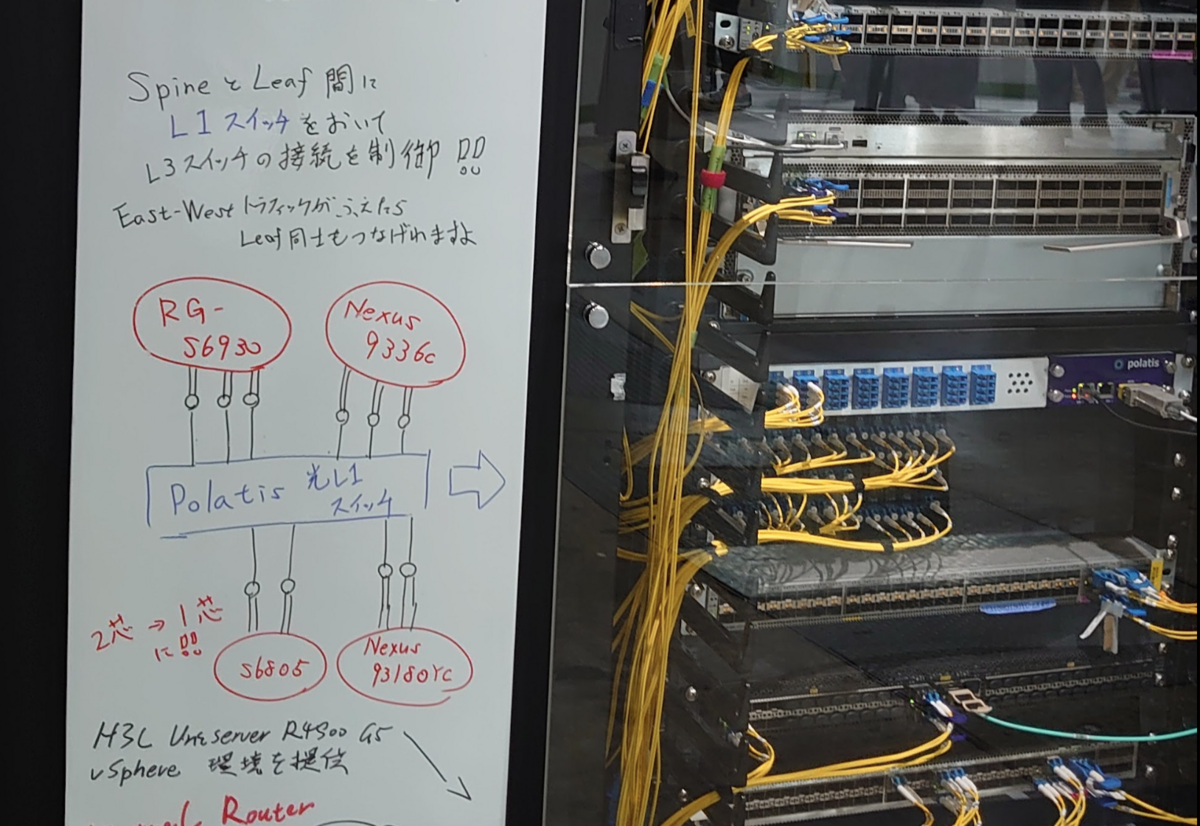 SpineとLeaf間に
L1スイッチをおいて
L3スイッチの接続を制御!!
East-Westトラフィックがふえたら
Leaf同士もつなげれますよ
RG-
S6930
Nexus
9336c
Polatis 光L1
スイッチ
polatis
2芯→1芯
に!!
S6805
Nexus
93180YC
H3C Uniserver R4900 G5
vSphere 環境を提供
Router